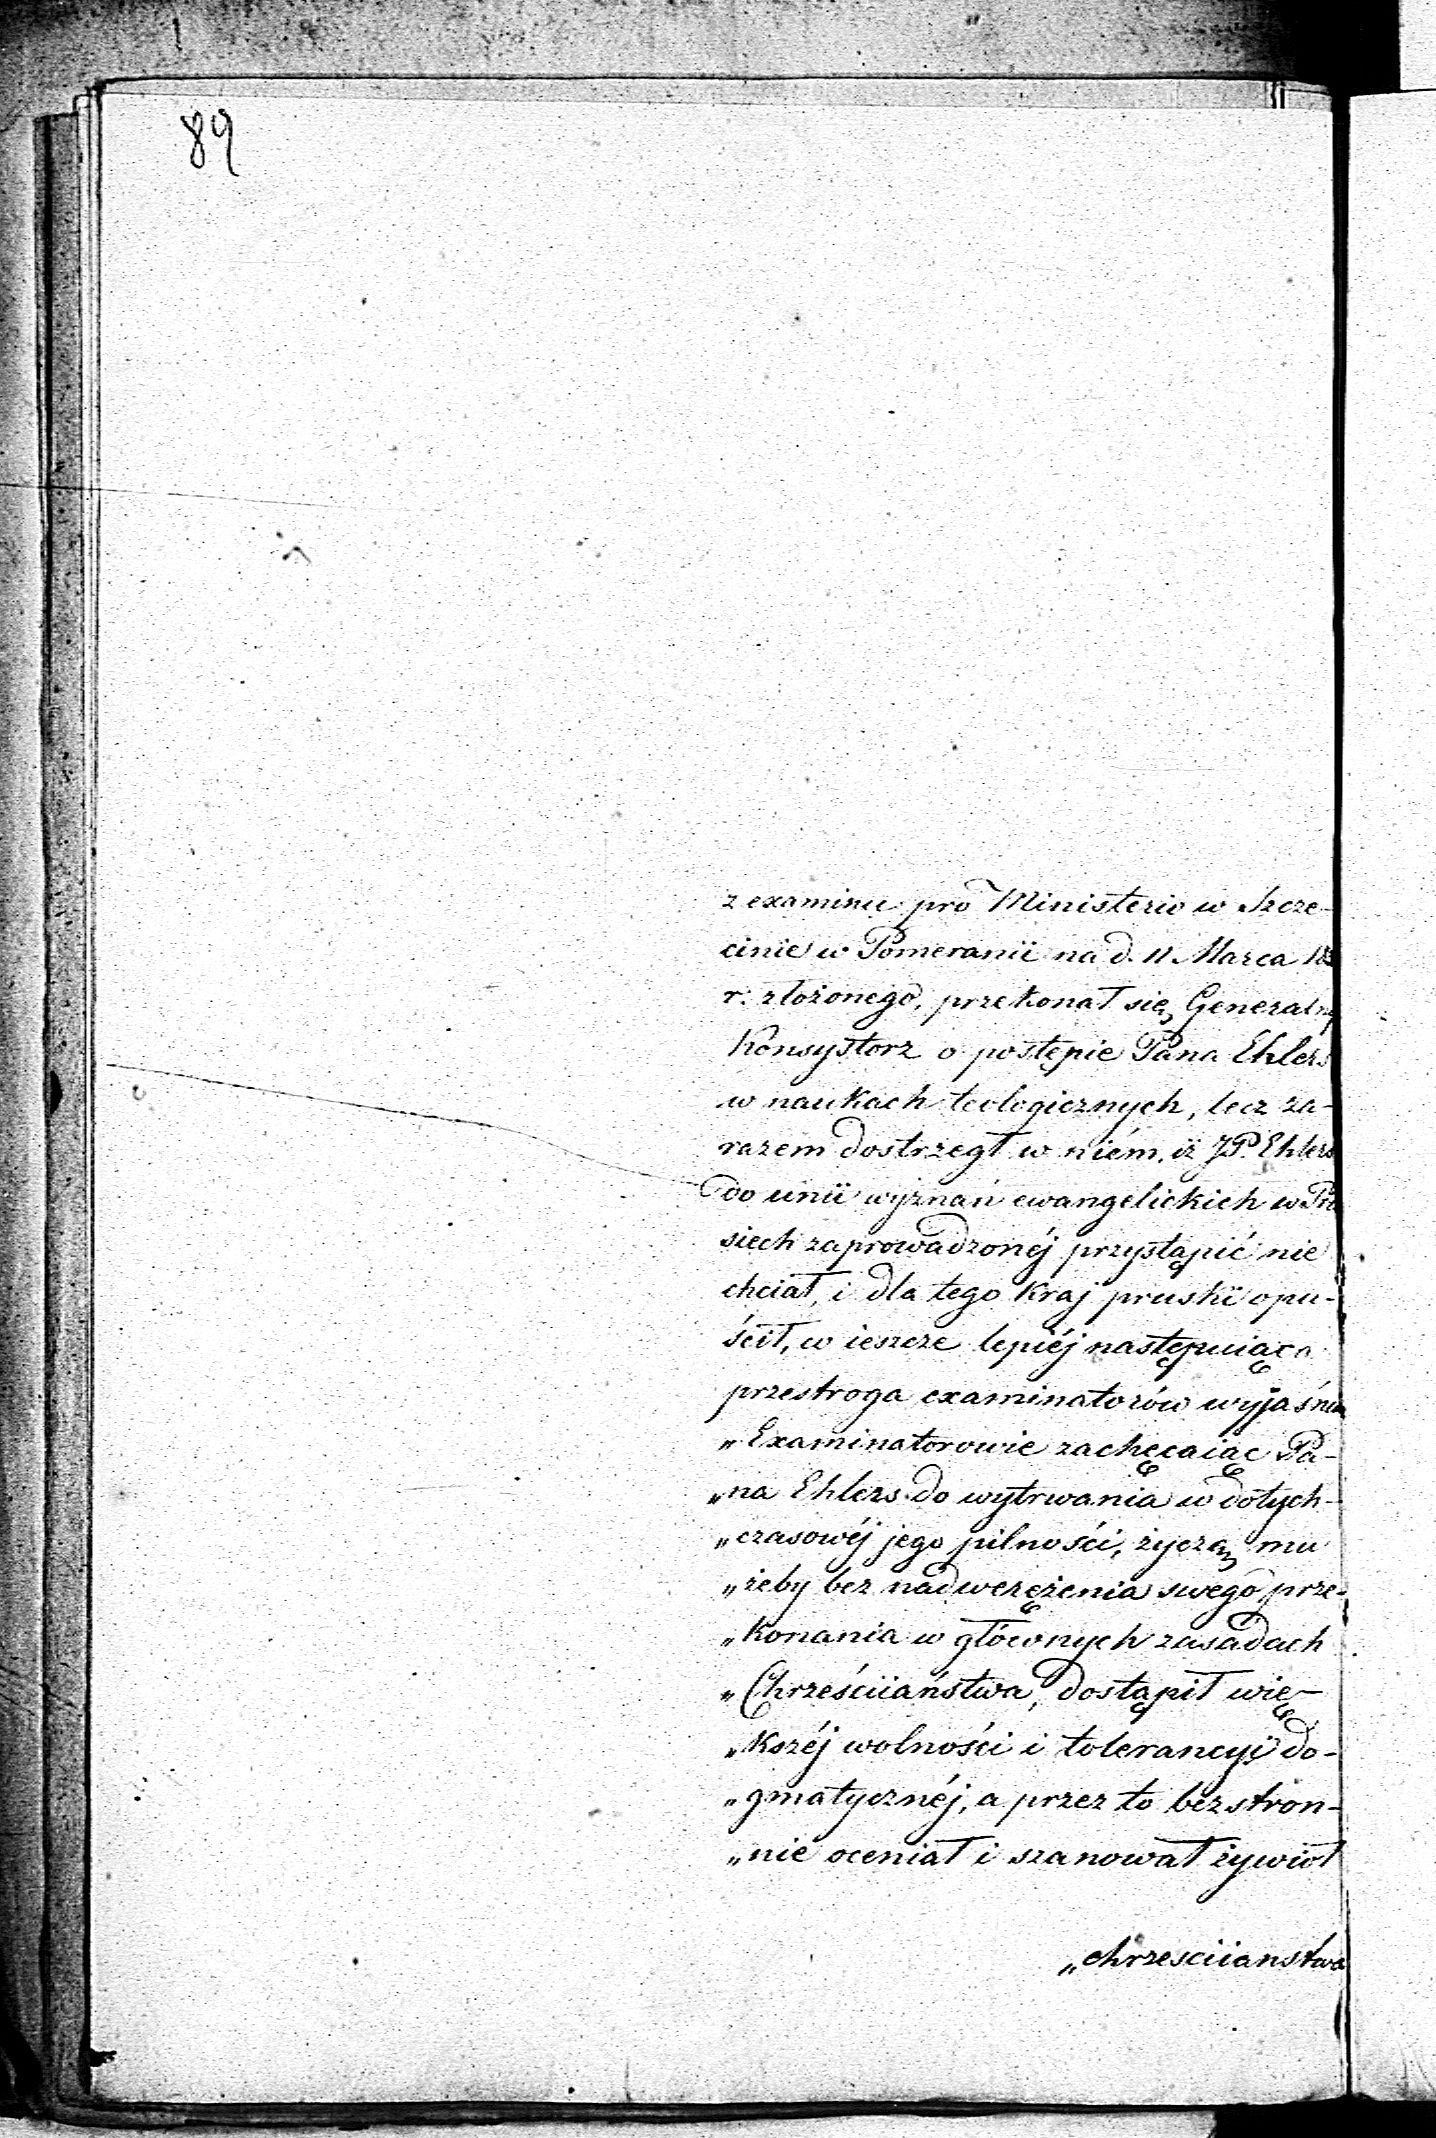 89
z examinu pro Ministerio w Szcze-
cinie w Pomeranii na d. 11 Marca 18
r: złożonego, przekonał się Generalny
Konsystorz o postępie Pana Ehlers
w naukach teologicznych, lecz za-
razem dostrzegł w niém, iż JP. Ehlers
do unii wyznań ewangelickich w Pru
siech zaprowadzonéj przystąpić nie
chciał, i dla tego kraj pruski opu-
ścił, co ieszcze lepiéj następuiąca
przestroga examinatorów wyjaśnia
„Examinatorowie zachęcaiąc Pa-
„na Ehlers do wytrwania w dotych-
„czasowéj jego pilności, życzą mu
„żeby bez nadwerężenia swego prze-
„konania w głównych zasadach
„Chrześciiaństwa, dostąpił wię-
„kszéj wolności i tolerancyi do-
„gmatycznéj, a przez to bezstron-
„nie oceniał i szanował żywioł
„chrzesciianstwa